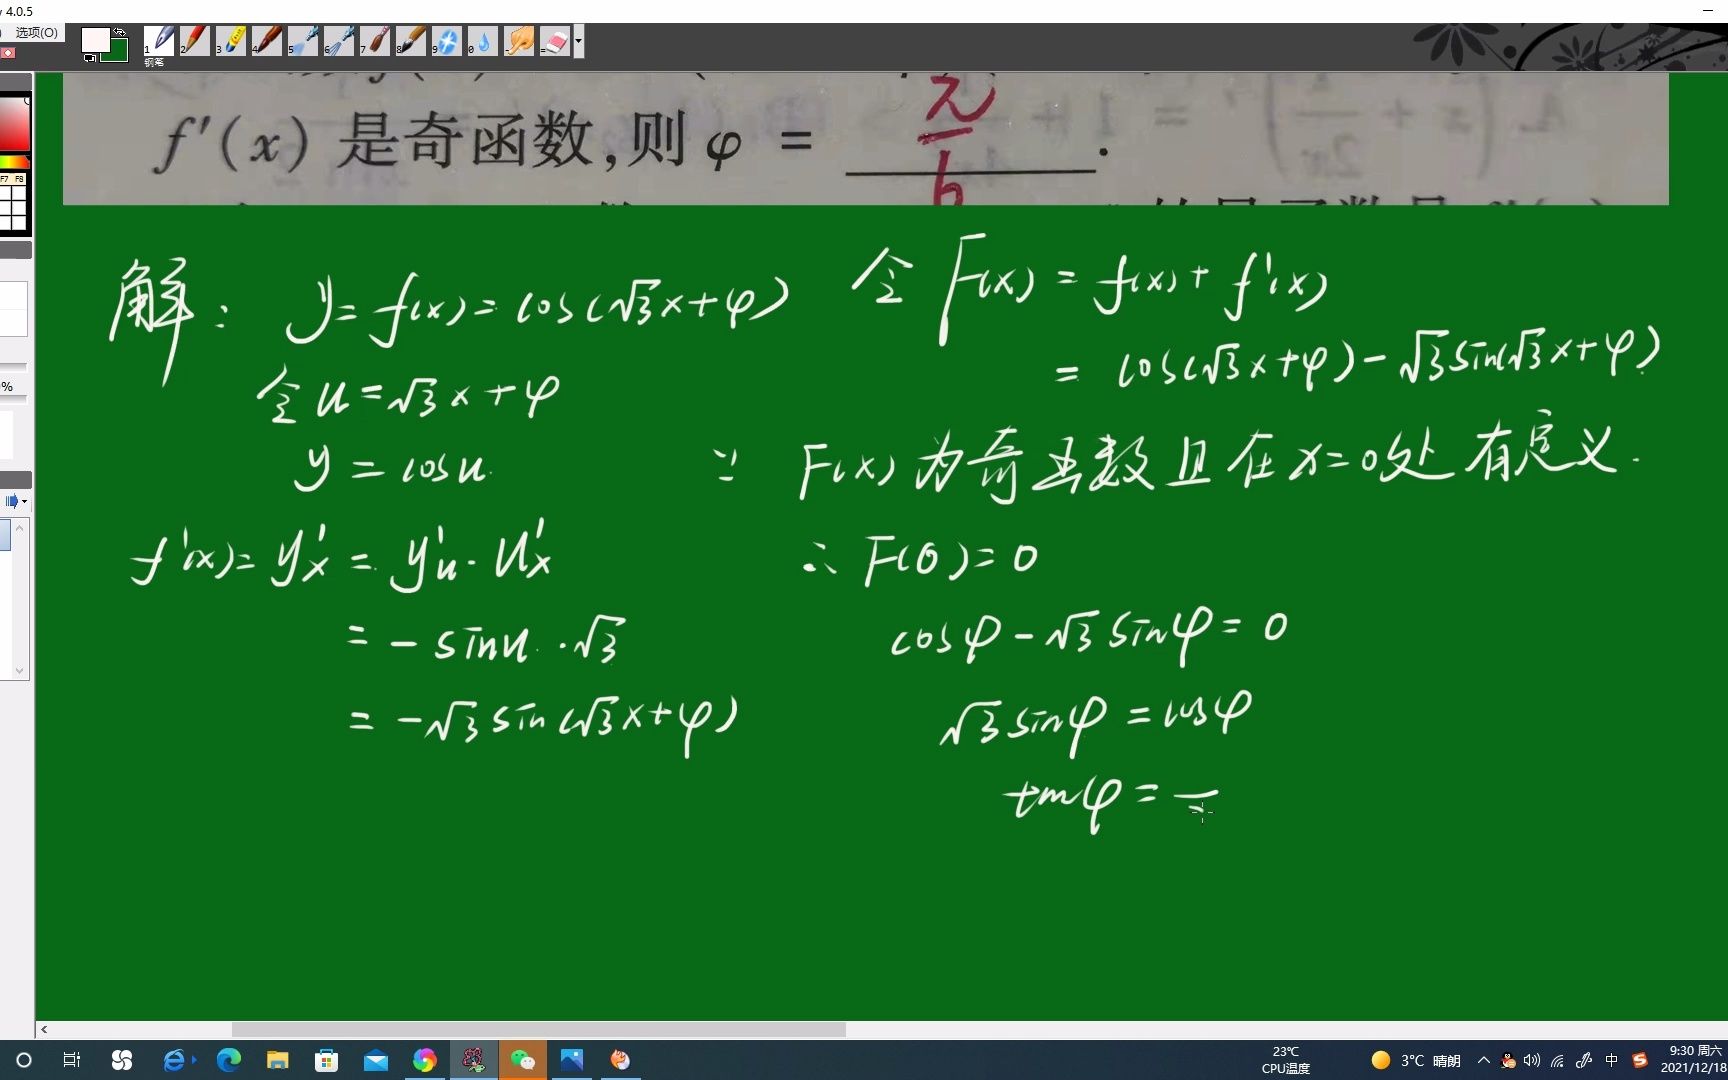 4.0.5
选项(O)
钢笔
f'(x) 是奇函数,则 φ = π/6 .
解: y=f(x)=cos(√3x+φ)
令 u=√3x+φ
y=cosu.
f'(x)=y'x=y'u·u'x
=-sinu·√3
=-√3sin(√3x+φ)
令 F(x)=f(x)+f'(x)
=cos(√3x+φ)-√3sin(√3x+φ)
∵ F(x)为奇函数且在x=0处有定义.
∴ F(0)=0
cosφ-√3sinφ=0
√3sinφ=cosφ
tanφ=
23℃
CPU温度
3°C 晴朗
中
9:30 周六
2021/12/18